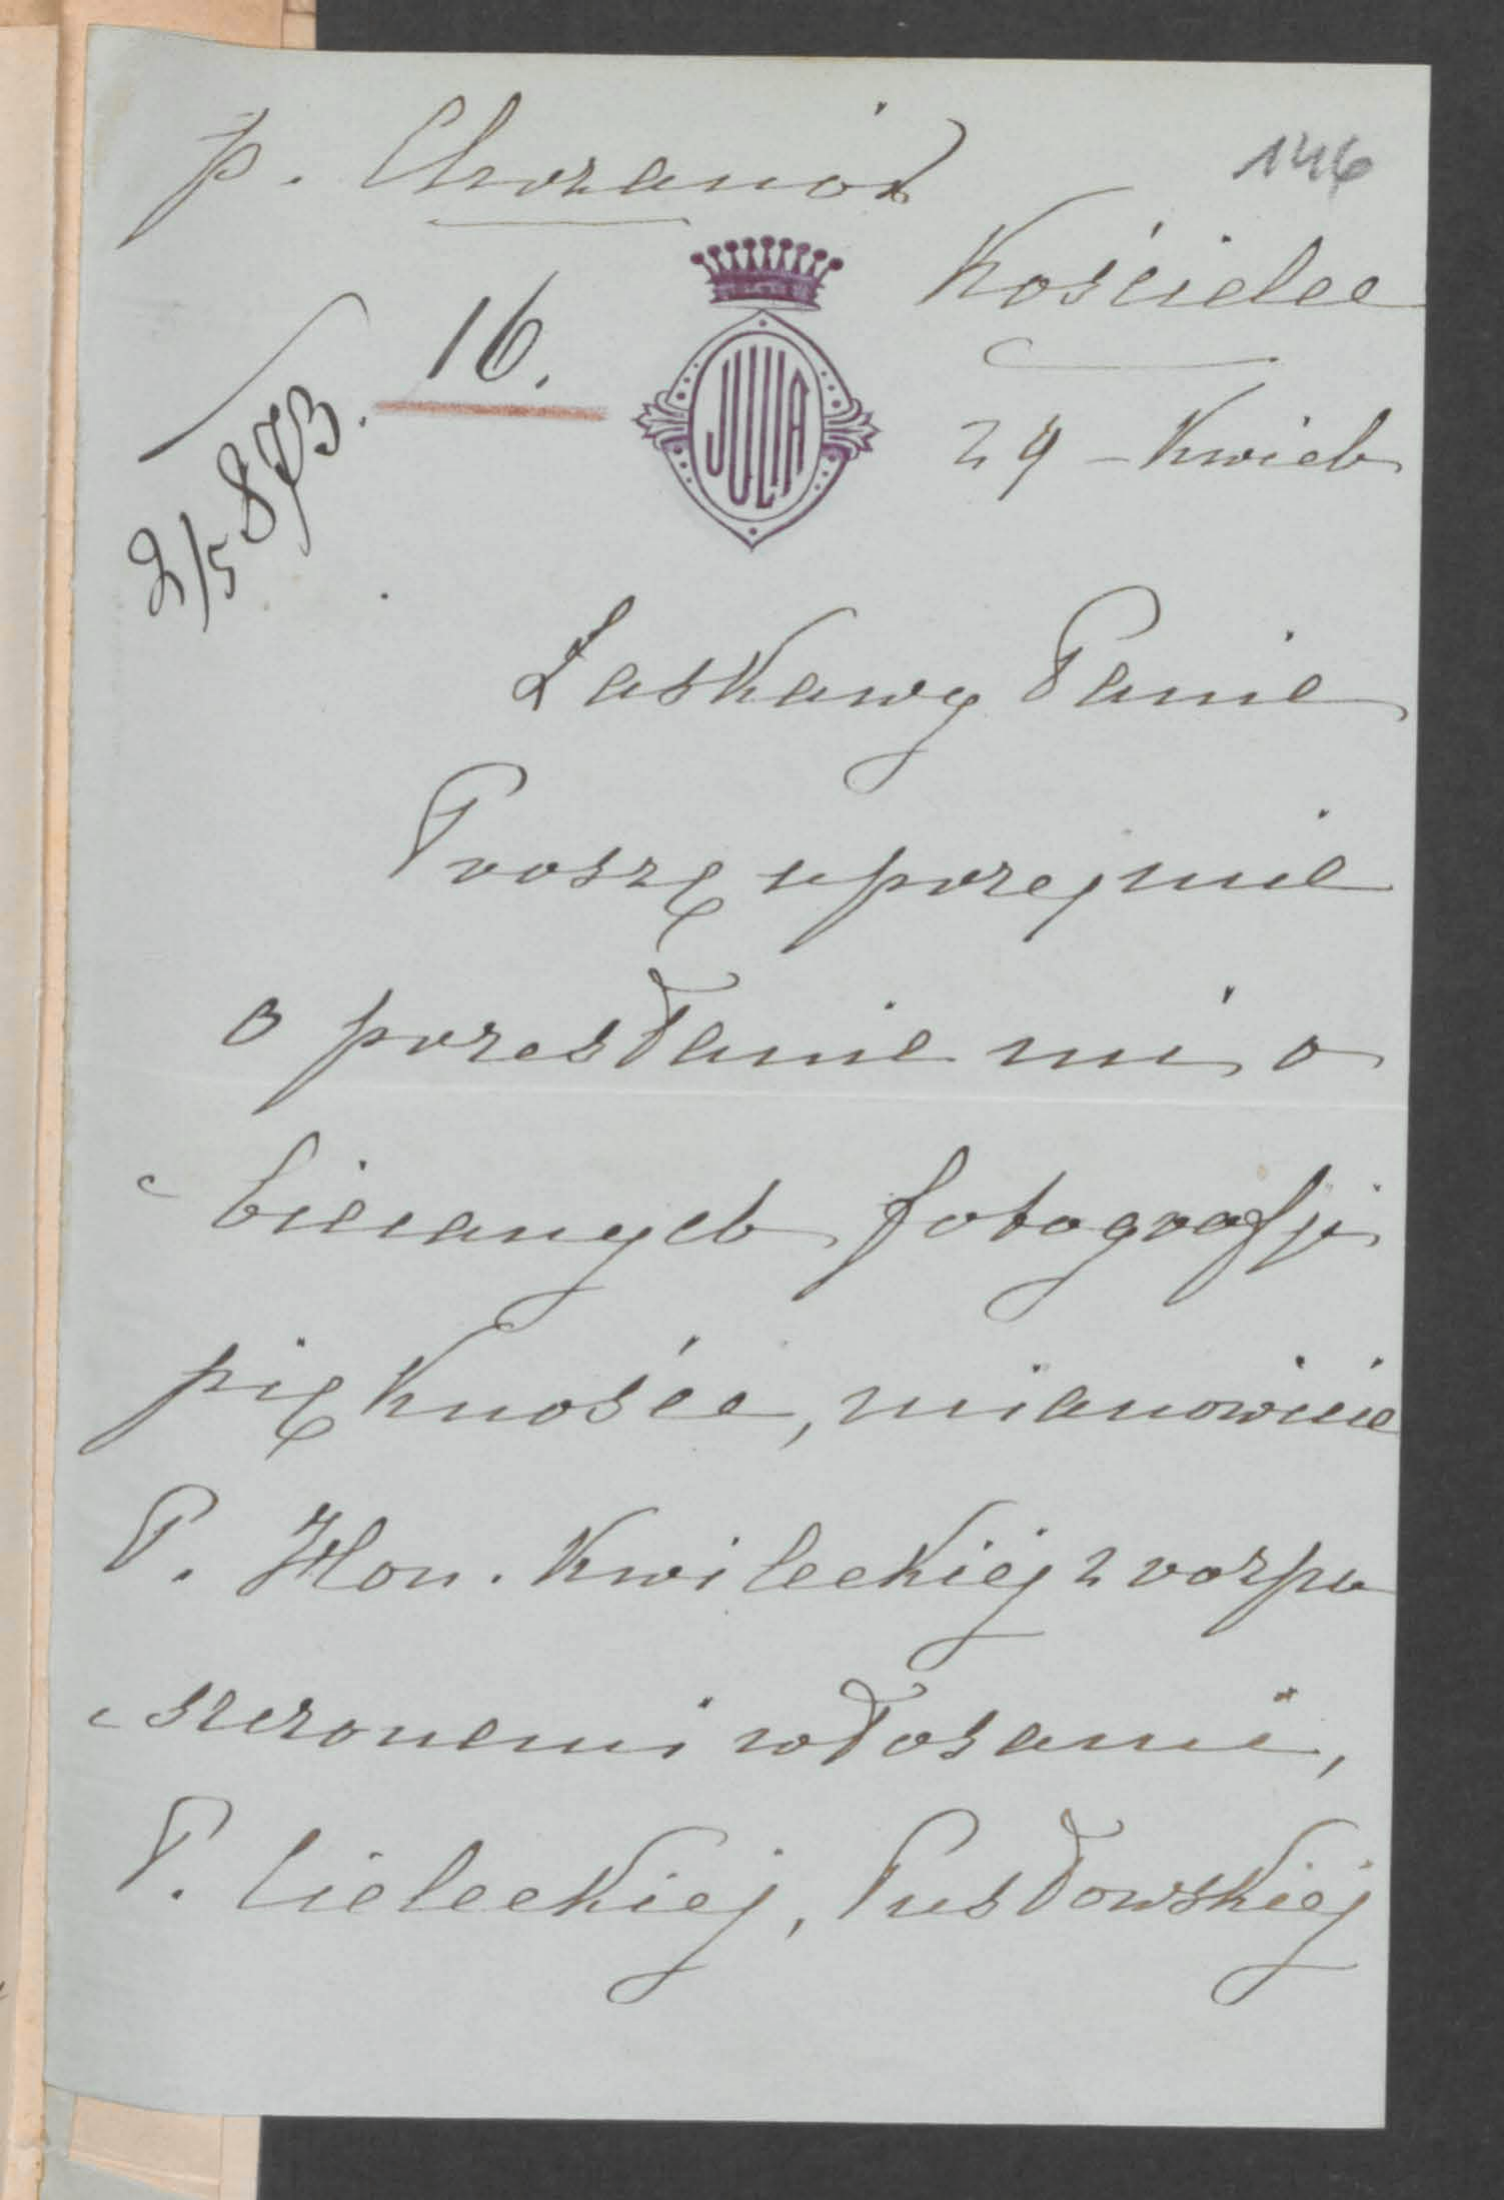 p. Chrzanów
146
Kościelec
16.
2/5 873.
JULIA
29 - Kwiet
Łaskawy Panie
Proszę uprzejmie
o przesłanie mi o
biecanych fotografji
piękności, mianowicie
P. Hon. Kwileckiéj z rozpu
szczonemi włosami,
P. Cieleckiej, Pusłowskiéj